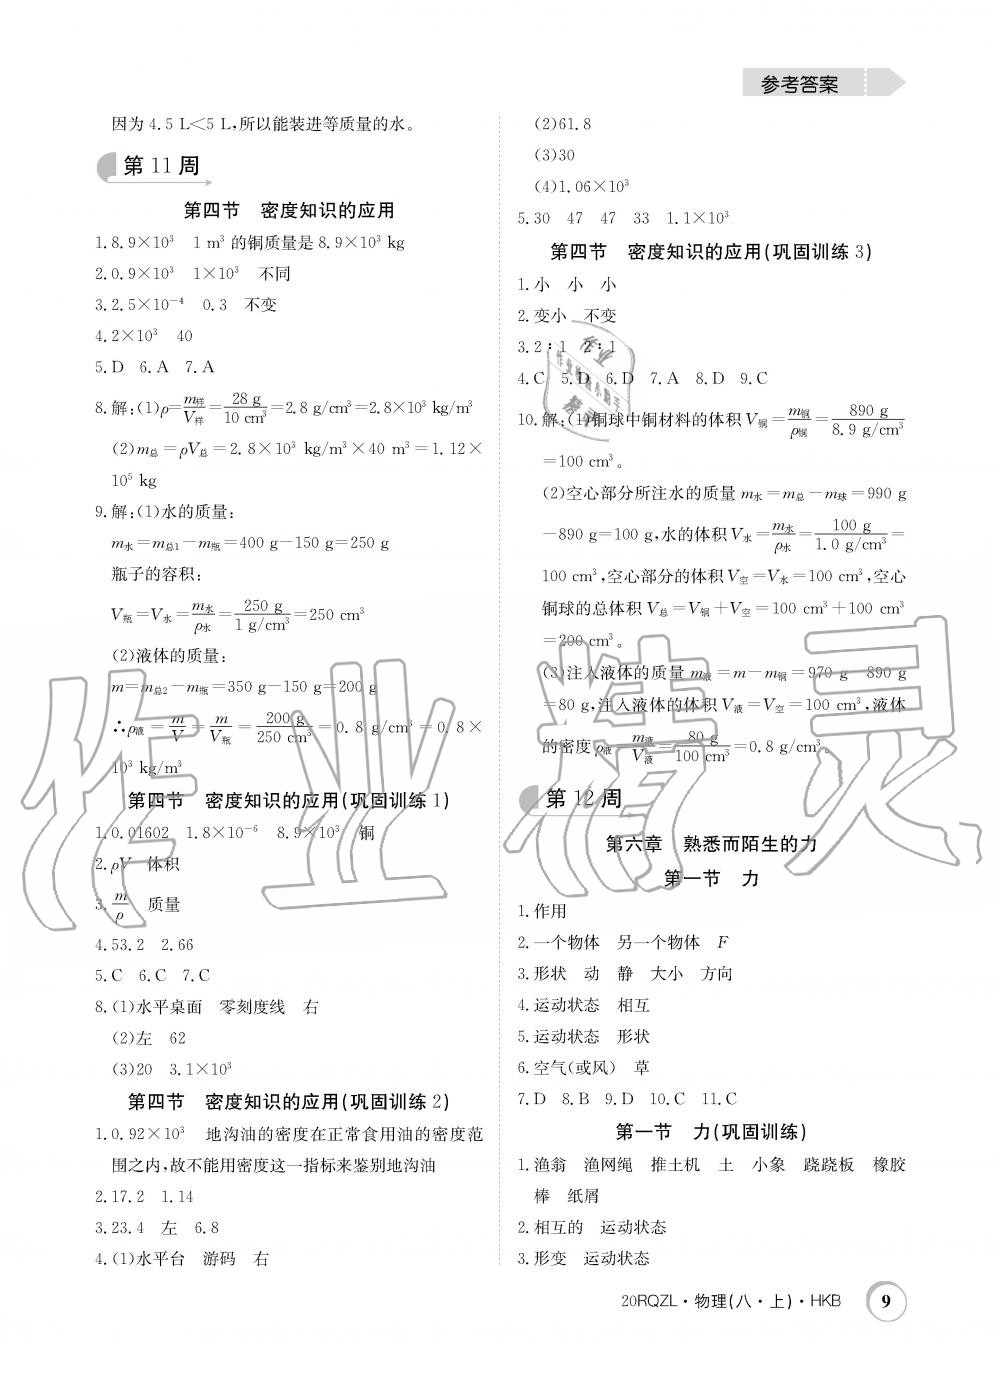 参考答案
因为 4.5 L<5 L,所以能装进等质量的水。
第 11 周
第四节 密度知识的应用
1.8.9×10³ 1 m³ 的铜质量是 8.9×10³ kg
2.0.9×10³ 1×10³ 不同
3.2.5×10⁻⁴ 0.3 不变
4.2×10³ 40
5.D 6.A 7.A
8.解:(1)ρ=m样/V样=28 g/10 cm³=2.8 g/cm³=2.8×10³ kg/m³
(2)m总=ρV总=2.8×10³ kg/m³×40 m³=1.12×
10⁵ kg
9.解:(1)水的质量:
m水=m总1-m瓶=400 g-150 g=250 g
瓶子的容积:
V瓶=V水=m水/ρ水=250 g/1 g/cm³=250 cm³
(2)液体的质量:
m=m总2-m瓶=350 g-150 g=200 g
∴ρ液=m/V=m/V瓶=200 g/250 cm³=0.8 g/cm³=0.8×
10³ kg/m³
第四节 密度知识的应用(巩固训练 1)
1.0.01602 1.8×10⁻⁶ 8.9×10³ 铜
2.ρV 体积
3.m/ρ 质量
4.53.2 2.66
5.C 6.C 7.C
8.(1)水平桌面 零刻度线 右
(2)左 62
(3)20 3.1×10³
第四节 密度知识的应用(巩固训练 2)
1.0.92×10³ 地沟油的密度在正常食用油的密度范
围之内,故不能用密度这一指标来鉴别地沟油
2.17.2 1.14
3.23.4 左 6.8
4.(1)水平台 游码 右
(2)61.8
(3)30
(4)1.06×10³
5.30 47 47 33 1.1×10³
第四节 密度知识的应用(巩固训练 3)
1.小 小 小
2.变小 不变
3.2∶1 2∶1
4.C 5.D 6.D 7.A 8.D 9.C
10.解:(1)铜球中铜材料的体积 V铜=m铜/ρ铜=890 g/8.9 g/cm³
=100 cm³。
(2)空心部分所注水的质量 m水=m总-m球=990 g
-890 g=100 g,水的体积 V水=m水/ρ水=100 g/1.0 g/cm³=
100 cm³,空心部分的体积 V空=V水=100 cm³,空心
铜球的总体积 V总=V铜+V空=100 cm³+100 cm³
=200 cm³。
(3)注入液体的质量 m液=m-m铜=970 g-890 g
=80 g,注入液体的体积 V液=V空=100 cm³,液体
的密度 ρ液=m液/V液=80 g/100 cm³=0.8 g/cm³。
第 12 周
第六章 熟悉而陌生的力
第一节 力
1.作用
2.一个物体 另一个物体 F
3.形状 动 静 大小 方向
4.运动状态 相互
5.运动状态 形状
6.空气(或风) 草
7.D 8.B 9.D 10.C 11.C
第一节 力(巩固训练)
1.渔翁 渔网绳 推土机 土 小象 跷跷板 橡胶
棒 纸屑
2.相互的 运动状态
3.形变 运动状态
20RQZL·物理(八·上)·HKB 9
作业精灵